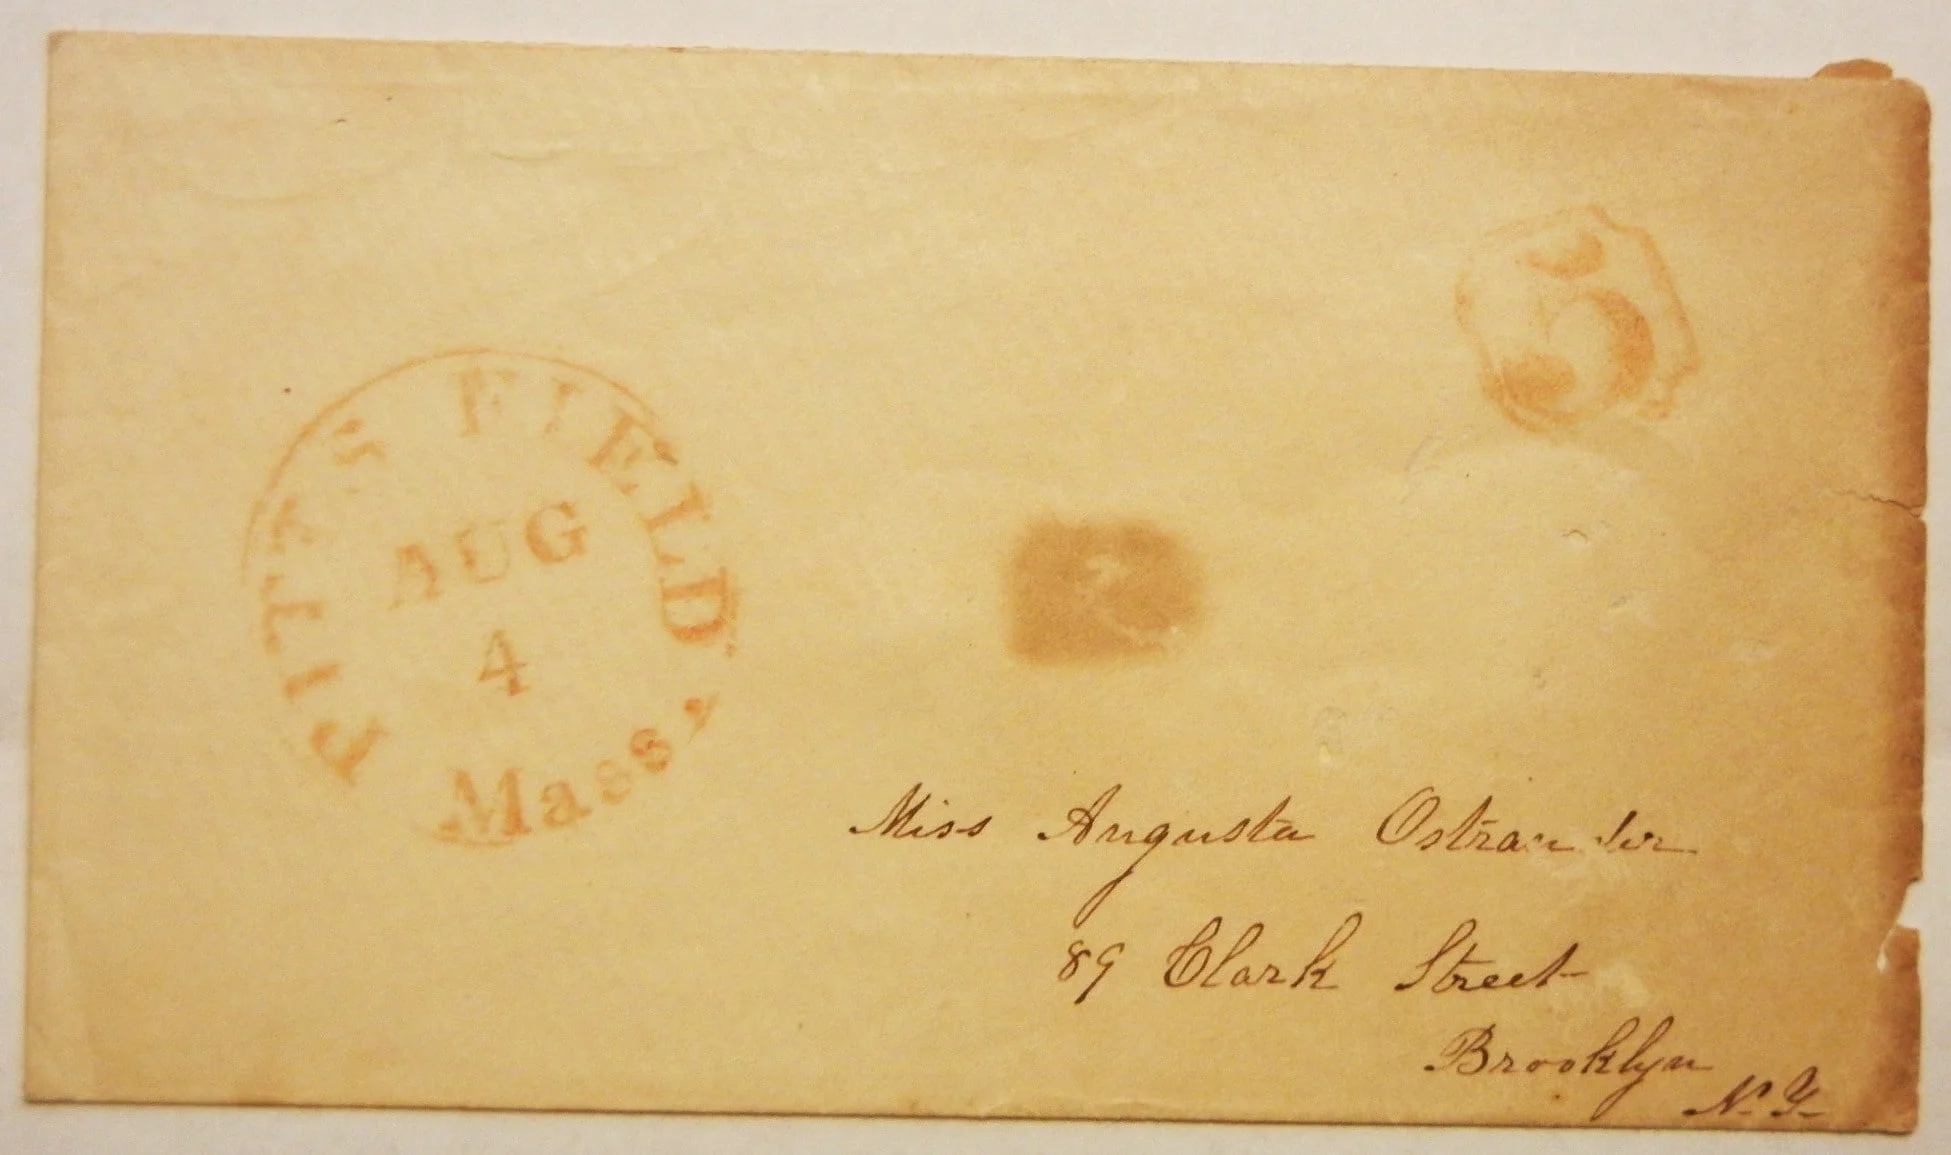 PITTSFIELD
AUG
4
Mass
5
Miss Augusta Ostrander
89 Clark Street
Brooklyn
N. Y.